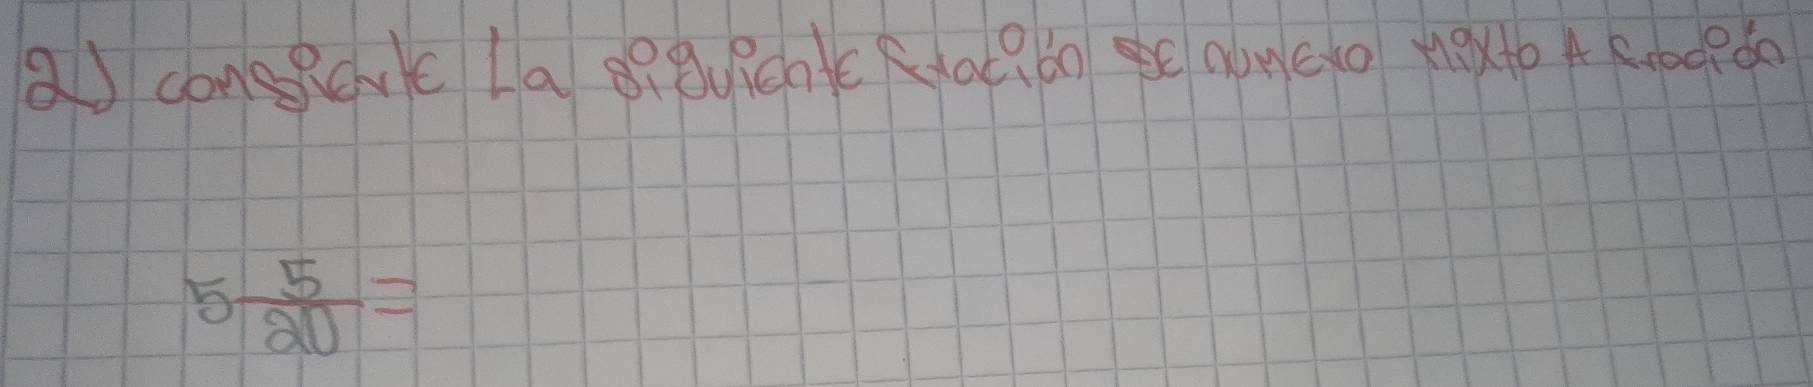 2) consievte La siguiente fración de número mixto A fración
5 5/20 =